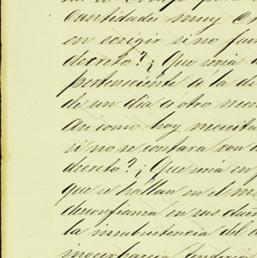 cantidades muy
en exigir si no fue
decreto? ¿Que seria
perteneciente a la de
de un dia a otro
Asi como hoy necesita
si no se contara con
decreto? ¿Que seria en
que se hallan en el
desconfianza en sus
la insubsistencia del